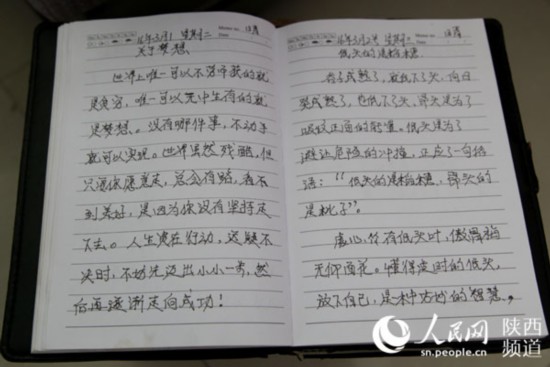 16年3月1 星期二
Date
关于梦想
世界上唯一可以不劳而获的就
是贫穷,唯一可以无中生有的就
是梦想。没有哪件事,不动手
就可以实现。世界虽然残酷,但
只要你愿意走,总会有路,看不
到美好,是因为你没有坚持走
下去。人生贵在行动,迟疑不
决时,不妨先迈出小小一步,然
后再逐渐走向成功!
16年3月2号 星期三
Date
低头的是稻穗
稻子成熟了,就低下了头,向日
葵成熟了,也低下了头。昂头是为了
吸收正面的能量。低头是为了
避让危险的冲撞,正应了一句俗
语:“低头的是稻穗,昂头的
是秕子”。
虚心竹有低头叶,傲骨梅
无仰面花。懂得适时的低头,
放下自己,是一种巧妙的智慧。
人民网 陕西
频道
sn.people.cn